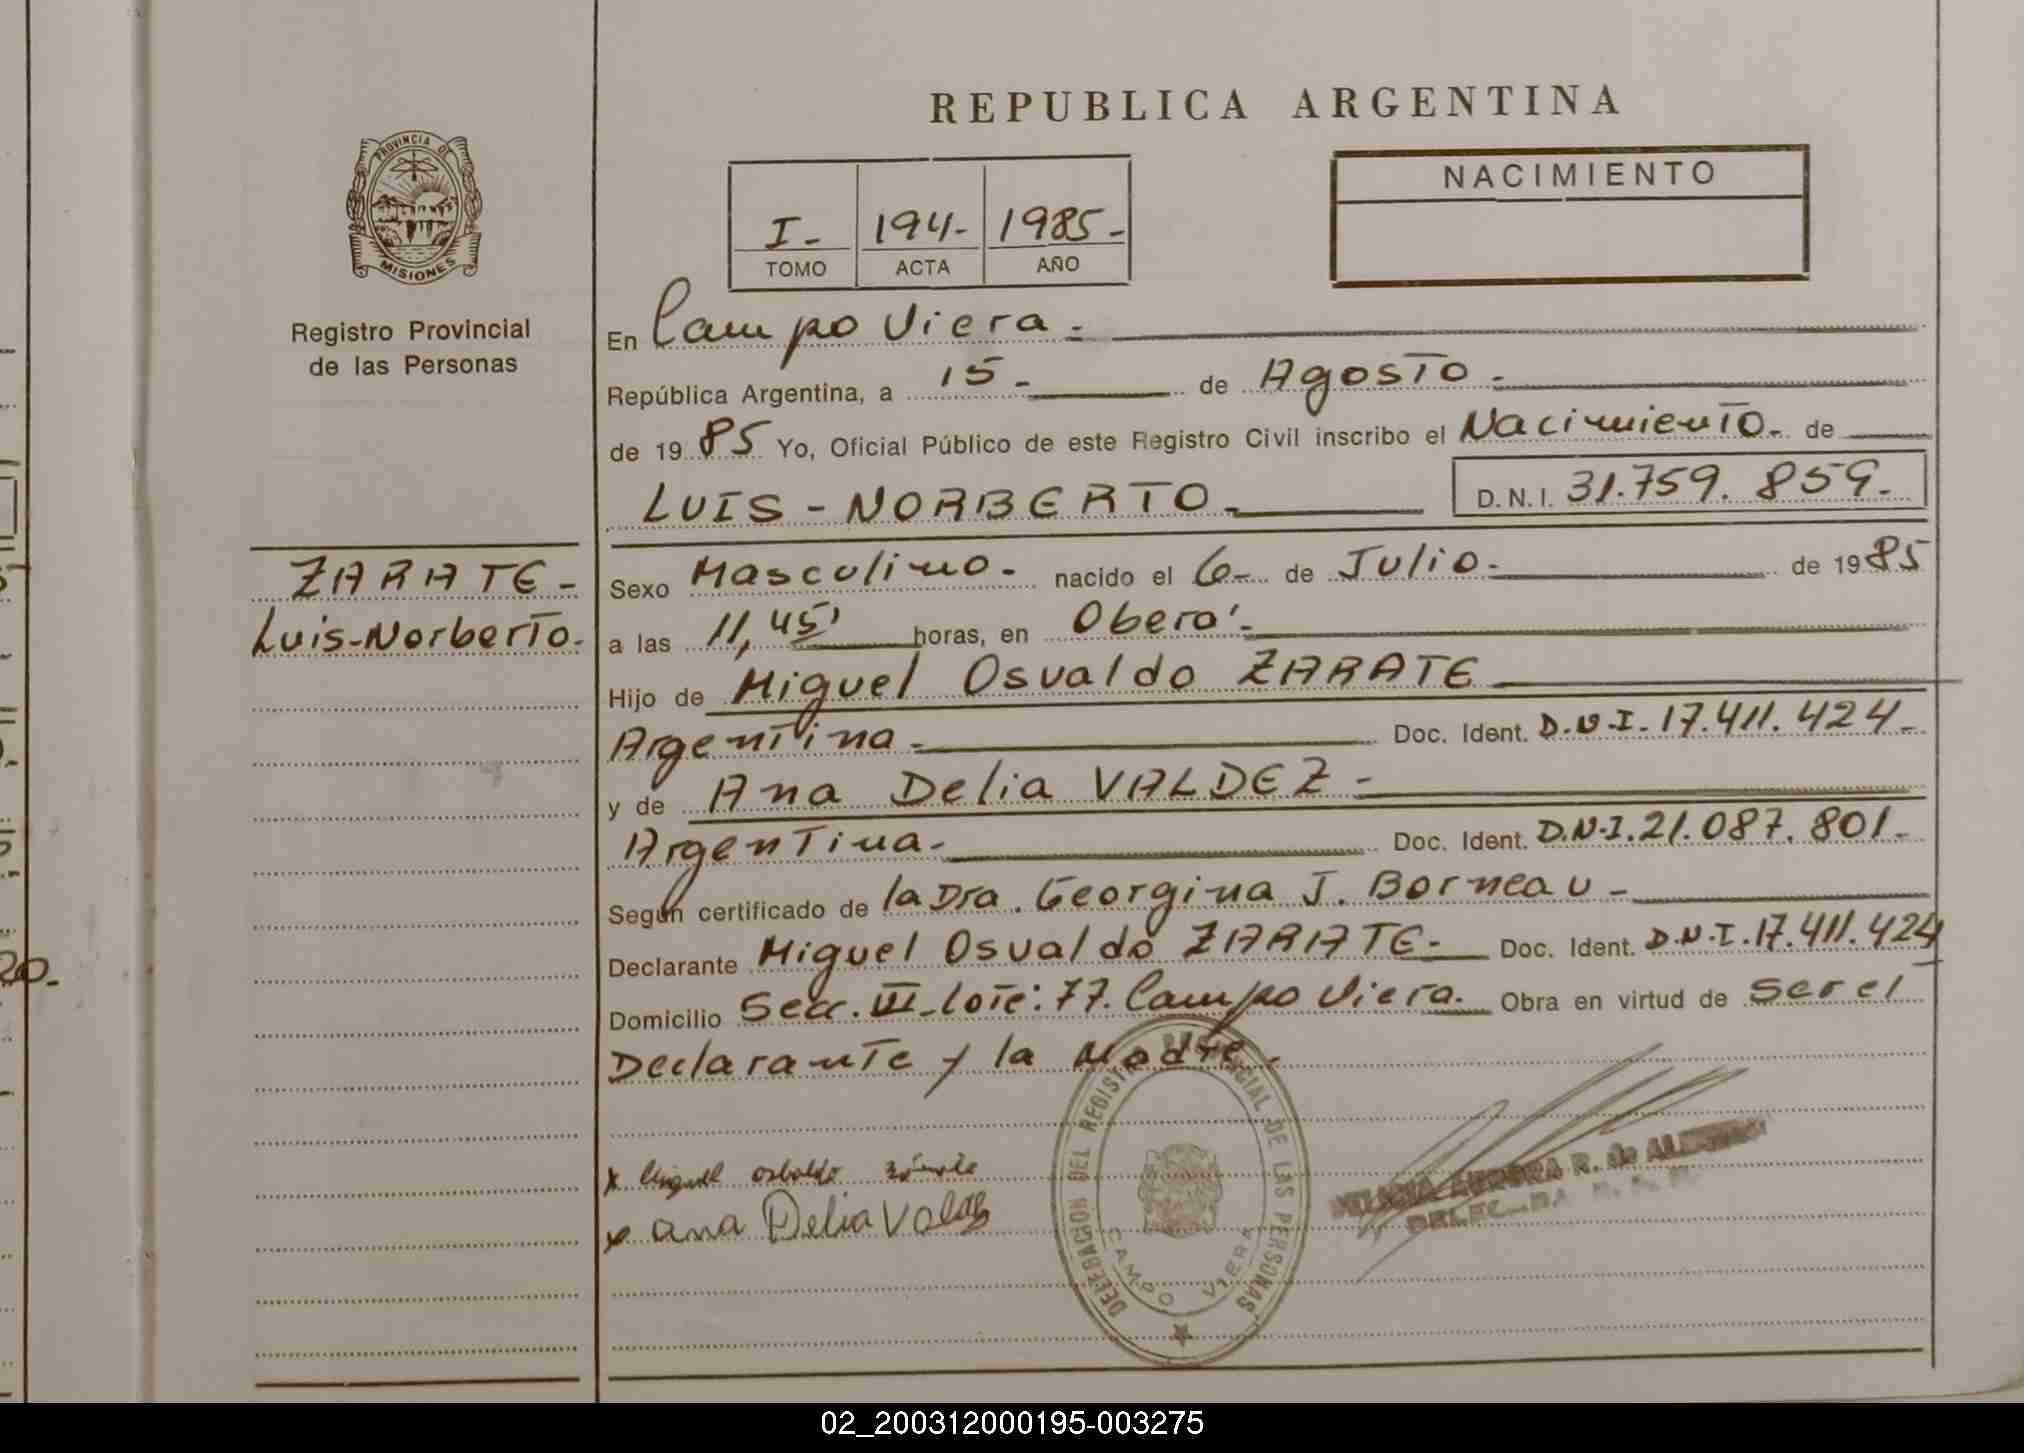 REPUBLICA ARGENTINA
PROVINCIA DE
MISIONES
Registro Provincial
de las Personas
NACIMIENTO
I- 194- 1985-
TOMO ACTA AÑO
En Campo Viera.-
República Argentina, a 15- de Agosto-
de 1985 Yo, Oficial Público de este Registro Civil inscribo el Nacimiento- de
LUIS-NORBERTO- D.N.I. 31.759.859-
ZARATE-
Luis-Norberto.
Sexo Masculino- nacido el 6- de Julio- de 1985
a las 11,45' horas, en Oberá-
Hijo de Miguel Osvaldo ZARATE
Argentina- Doc. Ident. D.N.I-17.411.424-
y de Ana Delia VALDEZ-
Argentina- Doc. Ident. D.N.I.21.087.801-
Según certificado de la Dra. Georgina J. Borneau-
Declarante Miguel Osvaldo ZARATE- Doc. Ident. D.N.I.17.411.424
Domicilio Secc. III-lote: 77. Campo Viera. Obra en virtud de ser el
Declarante y la Madre.
x Miguel osbaldo zárate
x ana Delia Valdez
DELEGACION DEL REGISTRO PROVINCIAL DE LAS PERSONAS
CAMPO VIERA
AURORA R. de
02_200312000195-003275